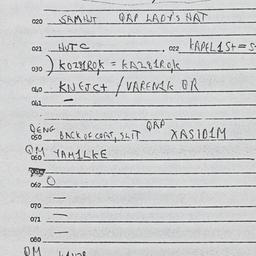 020 SAMHUT QAP LADY'S HAT
021 HUTC . 022 KAPEL1St = S
030 ) KOZ81ROK = KAZ81ROK
040 KNEJC+ / VARENIK OR
041 —
QENG 050 BACK OF COAT, SLIT QAP XAS1D1M
QM 060 YAM1LKE
062 O
070 —
071 —
080 —
QM